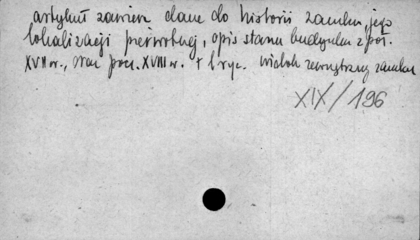 artykuł zawiera dane do historii zamku, jego
lokalizacji pierwotnej, opis stanu budynku z poł.
XVII w., oraz pocz. XVIII w. + 1 ryc. widok zewnętrzny zamku
XIX/196